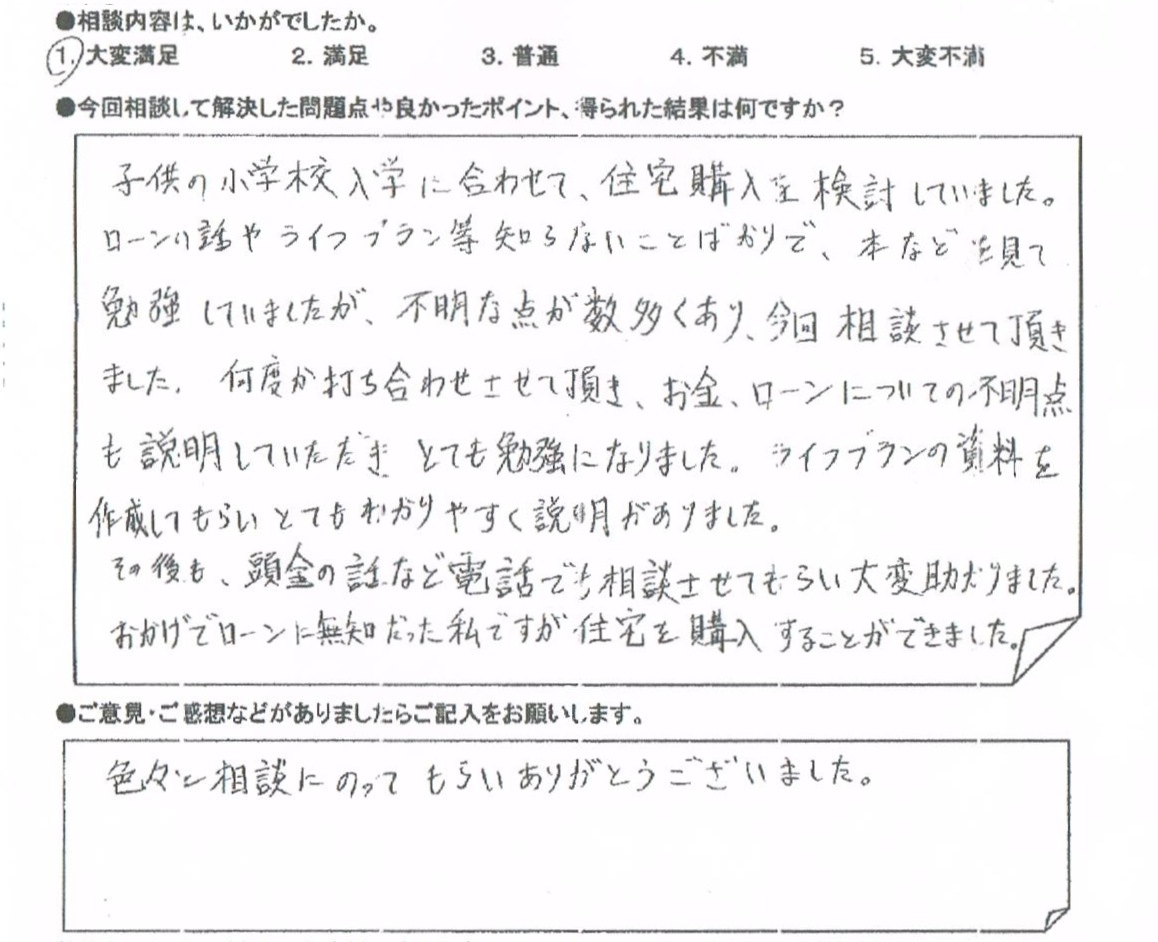 ●相談内容は、いかがでしたか。
1. 大変満足 2. 満足 3. 普通 4. 不満 5. 大変不満
●今回相談して解決した問題点や良かったポイント、得られた結果は何ですか？
子供の小学校入学に合わせて、住宅購入を検討していました。
ローンの話やライフプラン等知らないことばかりで、本などを見て
勉強していましたが、不明な点が数多くあり、今回相談させて頂き
ました。何度か打ち合わせさせて頂き、お金、ローンについての不明点
も説明していただき とても勉強になりました。ライフプランの資料を
作成してもらいとてもわかりやすく説明がありました。
その後も、頭金の話など電話でも相談させてもらい大変助かりました。
おかげでローンに無知だった私ですが住宅を購入することができました。
●ご意見・ご感想などがありましたらご記入をお願いします。
色々と相談にのってもらいありがとうございました。